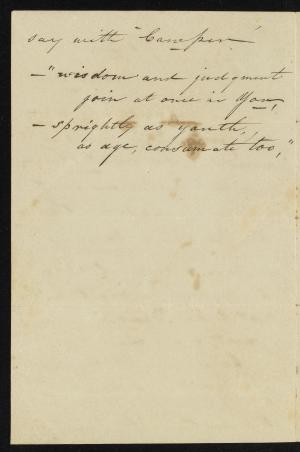 say with Cowper
— "wisdom and judgment
join at once in You,
— sprightly as youth,
as age, consumate too,"